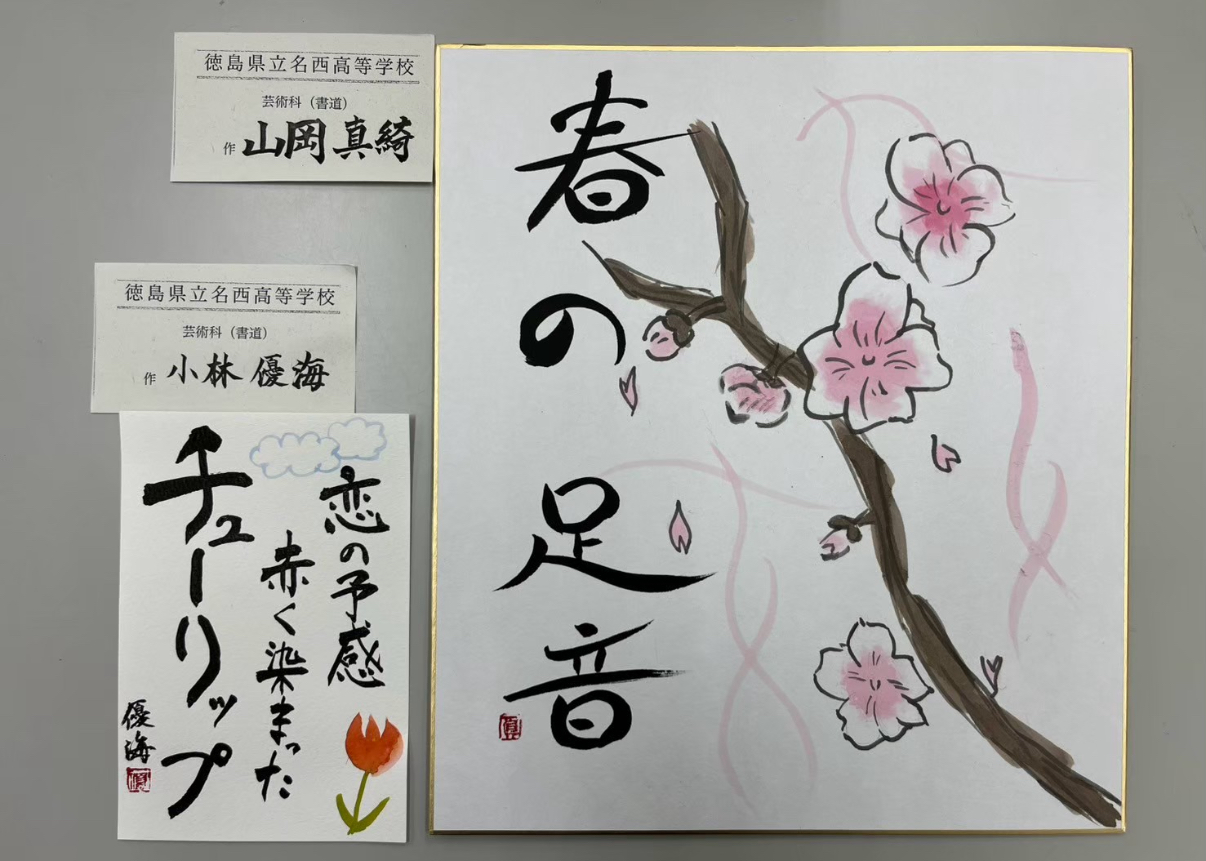 徳島県立名西高等学校
芸術科（書道）
作 山岡 真綺
春の足音
徳島県立名西高等学校
芸術科（書道）
作 小林 優海
恋の予感
赤く染まった
チューリップ
優海